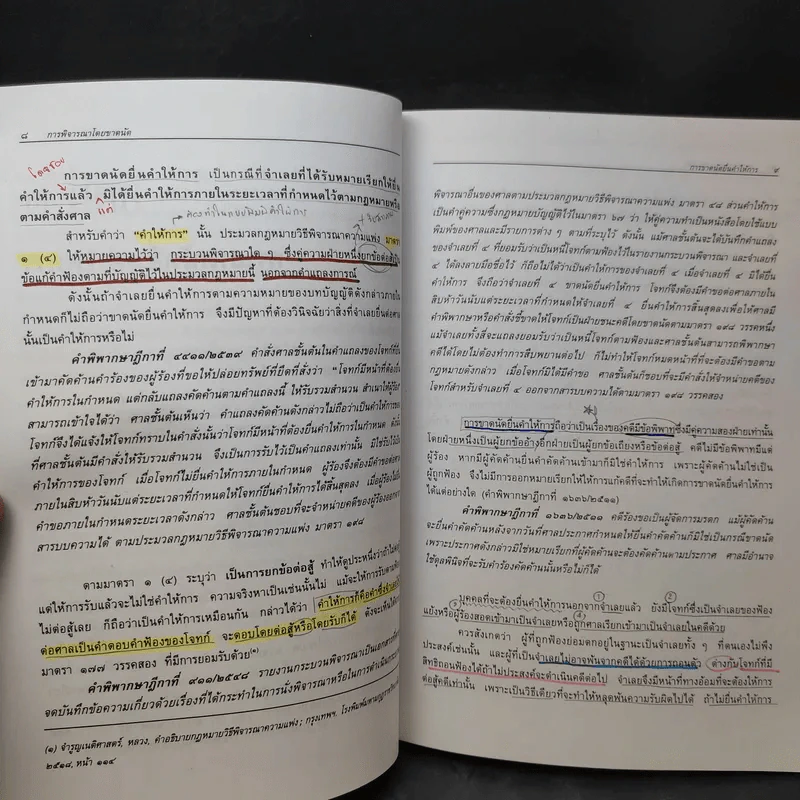 ๘ การพิจารณาโดยขาดนัด
การขาดนัดยื่นคำให้การ เป็นกรณีที่จำเลยที่ได้รับหมายเรียกให้ยื่น
คำให้การแล้ว มิได้ยื่นคำให้การภายในระยะเวลาที่กำหนดไว้ตามกฎหมายหรือ
ตามคำสั่งศาล
สำหรับคำว่า “คำให้การ” นั้น ประมวลกฎหมายวิธีพิจารณาความแพ่ง มาตรา
๑ (๔) ให้หมายความไว้ว่า กระบวนพิจารณาใด ๆ ซึ่งคู่ความฝ่ายหนึ่งยกข้อต่อสู้เป็น
ข้อแก้คำฟ้องตามที่บัญญัติไว้ในประมวลกฎหมายนี้ นอกจากคำแถลงการณ์
ดังนั้นถ้าจำเลยยื่นคำให้การตามความหมายของบทบัญญัติดังกล่าวภายใน
กำหนดก็ไม่ถือว่าขาดนัดยื่นคำให้การ จึงมีปัญหาที่ต้องวินิจฉัยว่าสิ่งที่จำเลยยื่นต่อศาล
นั้นเป็นคำให้การหรือไม่
คำพิพากษาฎีกาที่ ๔๕๑๑/๒๕๓๙ คำสั่งศาลชั้นต้นในคำแถลงของโจทก์ที่ยื่น
เข้ามาคัดค้านคำร้องของผู้ร้องที่ขอให้ปล่อยทรัพย์ที่ยึดที่สั่งว่า “โจทก์มีหน้าที่ต้องยื่น
คำให้การในกำหนด แต่กลับแถลงคัดค้านตามคำแถลงนี้ ให้รับรวมสำนวน สำเนาให้ผู้ร้อง”
สามารถเข้าใจได้ว่า ศาลชั้นต้นเห็นว่า คำแถลงคัดค้านดังกล่าวไม่ถือว่าเป็นคำให้การของ
โจทก์จึงได้แจ้งให้โจทก์ทราบในคำสั่งนั้นว่าโจทก์มีหน้าที่ต้องยื่นคำให้การในกำหนด ดังนั้น
ที่ศาลชั้นต้นมีคำสั่งให้รับรวมสำนวน จึงเป็นการรับไว้เป็นคำแถลงเท่านั้น มิใช่รับไว้เป็น
คำให้การของโจทก์ เมื่อโจทก์ไม่ยื่นคำให้การภายในกำหนด ผู้ร้องจึงต้องมีคำขอต่อศาล
ภายในสิบห้าวันนับแต่ระยะเวลาที่กำหนดให้โจทก์ยื่นคำให้การได้สิ้นสุดลง เมื่อผู้ร้องไม่ยื่น
คำขอภายในกำหนดระยะเวลาดังกล่าว ศาลชั้นต้นชอบที่จะจำหน่ายคดีของผู้ร้องออกจาก
สารบบความได้ ตามประมวลกฎหมายวิธีพิจารณาความแพ่ง มาตรา ๑๙๘
ตามมาตรา ๑ (๔) ระบุว่า เป็นการยกข้อต่อสู้ ทำให้ดูประหนึ่งว่าถ้าไม่ต่อสู้
แต่ให้การรับแล้วจะไม่ใช่คำให้การ ความจริงหาเป็นเช่นนั้นไม่ แม้จะให้การรับตามฟ้อง
ไม่ต่อสู้เลย ก็ถือว่าเป็นคำให้การเหมือนกัน กล่าวได้ว่า คำให้การก็คือคำซึ่งจำเลย
ต่อศาลเป็นคำตอบคำฟ้องของโจทก์ จะตอบโดยต่อสู้หรือโดยรับก็ได้ ดังจะเห็นได้จาก
มาตรา ๑๗๗ วรรคสอง ที่มีการยอมรับด้วย(๑)
คำพิพากษาฎีกาที่ ๙๑๑/๒๕๔๘ รายงานกระบวนพิจารณาเป็นเอกสารที่ศาล
จดบันทึกข้อความเกี่ยวด้วยเรื่องที่ได้กระทำในการนั่งพิจารณาหรือในการดำเนินกระบวน
(๑) จำรูญเนติศาสตร์, หลวง, คำอธิบายกฎหมายวิธีพิจารณาความแพ่ง ; กรุงเทพฯ. โรงพิมพ์
๒๕๑๘, หน้า ๑๑๔
การขาดนัดยื่นคำให้การ ๙
พิจารณาอื่นของศาลตามประมวลกฎหมายวิธีพิจารณาความแพ่ง มาตรา ๔๘ ส่วนคำให้การ
เป็นคำคู่ความซึ่งกฎหมายบัญญัติไว้ในมาตรา ๖๗ ว่า ให้คู่ความทำเป็นหนังสือโดยใช้แบบ
พิมพ์ของศาลและมีรายการต่าง ๆ ตามที่ระบุไว้ ดังนั้น แม้ศาลชั้นต้นจะได้บันทึกคำแถลง
ของจำเลยที่ ๔ ที่ยอมรับว่าเป็นหนี้โจทก์ตามฟ้องไว้ในรายงานกระบวนพิจารณา และจำเลยที่
๔ ได้ลงลายมือชื่อไว้ ก็ถือไม่ได้ว่าเป็นคำให้การของจำเลยที่ ๔ เมื่อจำเลยที่ ๔ มิได้ยื่น
คำให้การ จึงถือว่าจำเลยที่ ๔ ขาดนัดยื่นคำให้การ โจทก์จึงต้องมีคำขอต่อศาลภายใน
สิบห้าวันนับแต่ระยะเวลาที่กำหนดให้จำเลยที่ ๔ ยื่นคำให้การสิ้นสุดลงเพื่อให้ศาลมี
คำพิพากษาหรือคำสั่งชี้ขาดให้โจทก์เป็นฝ่ายชนะคดีโดยขาดนัดตามมาตรา ๑๙๘ วรรคหนึ่ง
แม้จำเลยทั้งสี่จะแถลงยอมรับว่าเป็นหนี้โจทก์ตามฟ้องและศาลชั้นต้นสามารถพิพากษา
คดีได้โดยไม่ต้องทำการสืบพยานต่อไป ก็ไม่ทำให้โจทก์หมดหน้าที่ที่จะต้องมีคำขอตาม
กฎหมายดังกล่าว เมื่อโจทก์มิได้มีคำขอ ศาลชั้นต้นก็ชอบที่จะมีคำสั่งให้จำหน่ายคดีของ
โจทก์สำหรับจำเลยที่ ๔ ออกจากสารบบความได้ตามมาตรา ๑๙๘ วรรคสอง
การขาดนัดยื่นคำให้การถือว่าเป็นเรื่องของคดีมีข้อพิพาทซึ่งมีคู่ความสองฝ่ายเท่านั้น
โดยฝ่ายหนึ่งเป็นผู้ยกข้ออ้างอีกฝ่ายเป็นผู้ยกข้อเถียงหรือข้อต่อสู้ คดีไม่มีข้อพิพาทมีแต่
ผู้ร้อง หากมีผู้คัดค้านยื่นคำคัดค้านเข้ามาก็มิใช่คำให้การ เพราะผู้คัดค้านไม่ใช่เป็น
ผู้ถูกฟ้อง จึงไม่มีการออกหมายเรียกให้ให้การแก้คดีที่จะทำให้เกิดการขาดนัดยื่นคำให้การ
ได้แต่อย่างใด (คำพิพากษาฎีกาที่ ๑๖๓๖/๒๕๑๑)
คำพิพากษาฎีกาที่ ๑๖๓๖/๒๕๑๑ คดีร้องขอเป็นผู้จัดการมรดก แม้ผู้คัดค้าน
จะยื่นคำคัดค้านหลังจากวันที่ศาลประกาศกำหนดให้ยื่นคำคัดค้านก็ไม่เป็นกรณีขาดนัด
เพราะประกาศดังกล่าวมิใช่หมายเรียกที่ผู้คัดค้านจะต้องคัดค้านตามประกาศ ศาลมีอำนาจ
ใช้ดุลพินิจที่จะรับคำร้องคัดค้านนั้นหรือไม่ก็ได้
บุคคลที่จะต้องยื่นคำให้การนอกจากจำเลยแล้ว ยังมีโจทก์ซึ่งเป็นจำเลยของฟ้อง
แย้งหรือผู้ร้องสอดเข้ามาเป็นจำเลยหรือถูกศาลเรียกเข้ามาเป็นจำเลยในคดีด้วย
ควรสังเกตว่า ผู้ที่ถูกฟ้องย่อมตกอยู่ในฐานะเป็นจำเลยทั้ง ๆ ที่ตนเองไม่พึง
ประสงค์เช่นนั้น และผู้ที่เป็นจำเลยไม่อาจพ้นจากคดีได้ด้วยการถอนตัว ต่างกับโจทก์ที่มี
สิทธิถอนฟ้องได้ถ้าไม่ประสงค์จะดำเนินคดีต่อไป จำเลยจึงมีหน้าที่ทางอ้อมที่จะต้องให้การ
ต่อสู้คดีเท่านั้น เพราะเป็นวิธีเดียวที่จะทำให้หลุดพ้นความรับผิดไปได้ ถ้าไม่ยื่นคำให้การ